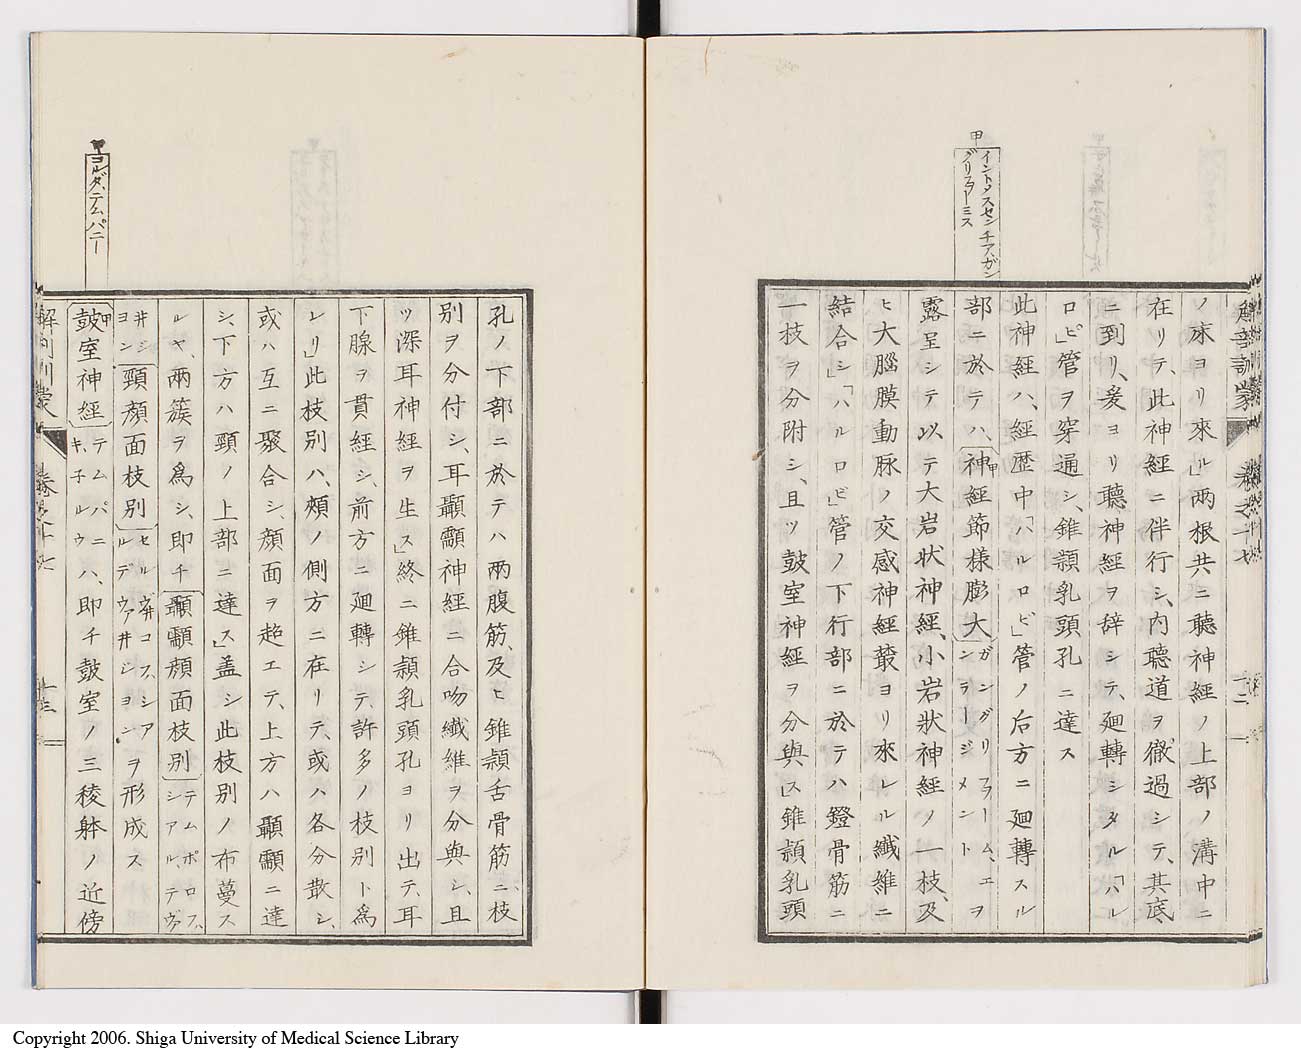 甲
イントメスセンチアガン
グリフヲーミス
解部訓蒙 巻之十七
ノ床ヨリ來ル」兩根共ニ聽神經ノ上部ノ溝中ニ
在リテ、此神經ニ伴行シ、内聽道ヲ嶶過シテ、其底、
ニ到リ、爰ヨリ聽神經ヲ辞シテ、廻轉シタル「ハル
ロピ」管ヲ穿通シ、錐顙乳頭孔ニ達ス
此神經ハ、經歴中「ハルロピ」管ノ后方ニ廻轉スル
部ニ於テハ、神經節様膨大ガングリフヲーム、エ
ンラーヂメントヲ
露呈シテ以テ大岩状神經、小岩状神經ノ一枝、及
ヒ大腦膜動脉ノ交感神經叢ヨリ來レル纖維ニ
結合シ」「ハルロピ」管ノ下行部ニ於テハ鐙骨筋ニ
一枝ヲ分附シ、且ツ鼓室神經ヲ分與ス」錐顙乳頭
コルダ、テムパニー
孔ノ下部ニ於テハ兩腹筋、及ヒ錐顙舌骨筋ニ、枝
別ヲ分付シ、耳顳顬神經ニ合吻纖維ヲ分與シ、且
ツ深耳神經ヲ生ス」終ニ錐顙乳頭孔ヨリ出テ、耳
下腺ヲ貫經シ、前方ニ廻轉シテ、許多ノ枝別ト爲
レリ」此枝別ハ、頰ノ側方ニ在リテ、或ハ各分散シ、
或ハ互ニ聚合シ、顔面ヲ超エテ、上方ハ顳顬ニ達
シ、下方ハ頸ノ上部ニ達ス」盖シ此枝別ノ布蔓ス
ルヤ、兩簇ヲ爲シ、即チ顳顬顔面枝別テムポロス、
シアル、テヴ
井ジヨン頸顔面枝別セルヴ井コスシア
ルデヴァ井シヨンヲ形成ス
鼓室神經テムパニ
キ、子ルウハ、即チ鼓室ノ三稜躰ノ近傍
解剖訓蒙 巻之十七 十三